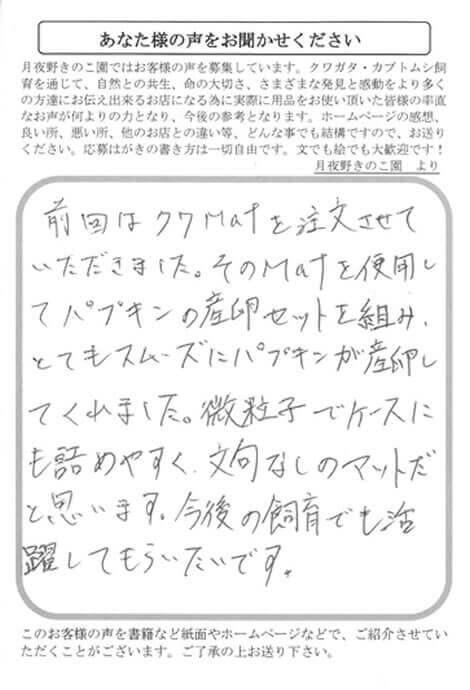 あなた様の声をお聞かせください
月夜野きのこ園ではお客様の声を募集しています。クワガタ・カブトムシ飼
育を通じて、自然との共生、命の大切さ、さまざまな発見と感動をより多く
の方達にお伝え出来るお店になる為に実際に用品をお使い頂いた皆様の率直
なお声が何よりの力となり、今後の参考となります。ホームページの感想、
良い所、悪い所、他のお店との違い等、どんな事でも結構ですので、お送り
ください。応募はがきの書き方は一切自由です。文でも絵でも大歓迎です！
月夜野きのこ園　より
前回はクワMatを注文させて
いただきました。そのMatを使用し
てパプキンの産卵セットを組み、
とてもスムーズにパプキンが産卵し
てくれました。微粒子でケースに
も詰めやすく、文句なしのマットだ
と思います。今後の飼育でも活
躍してもらいたいです。
このお客様の声を書籍など紙面やホームページなどで、ご紹介させてい
ただくことがございます。ご了承の上お送り下さい。